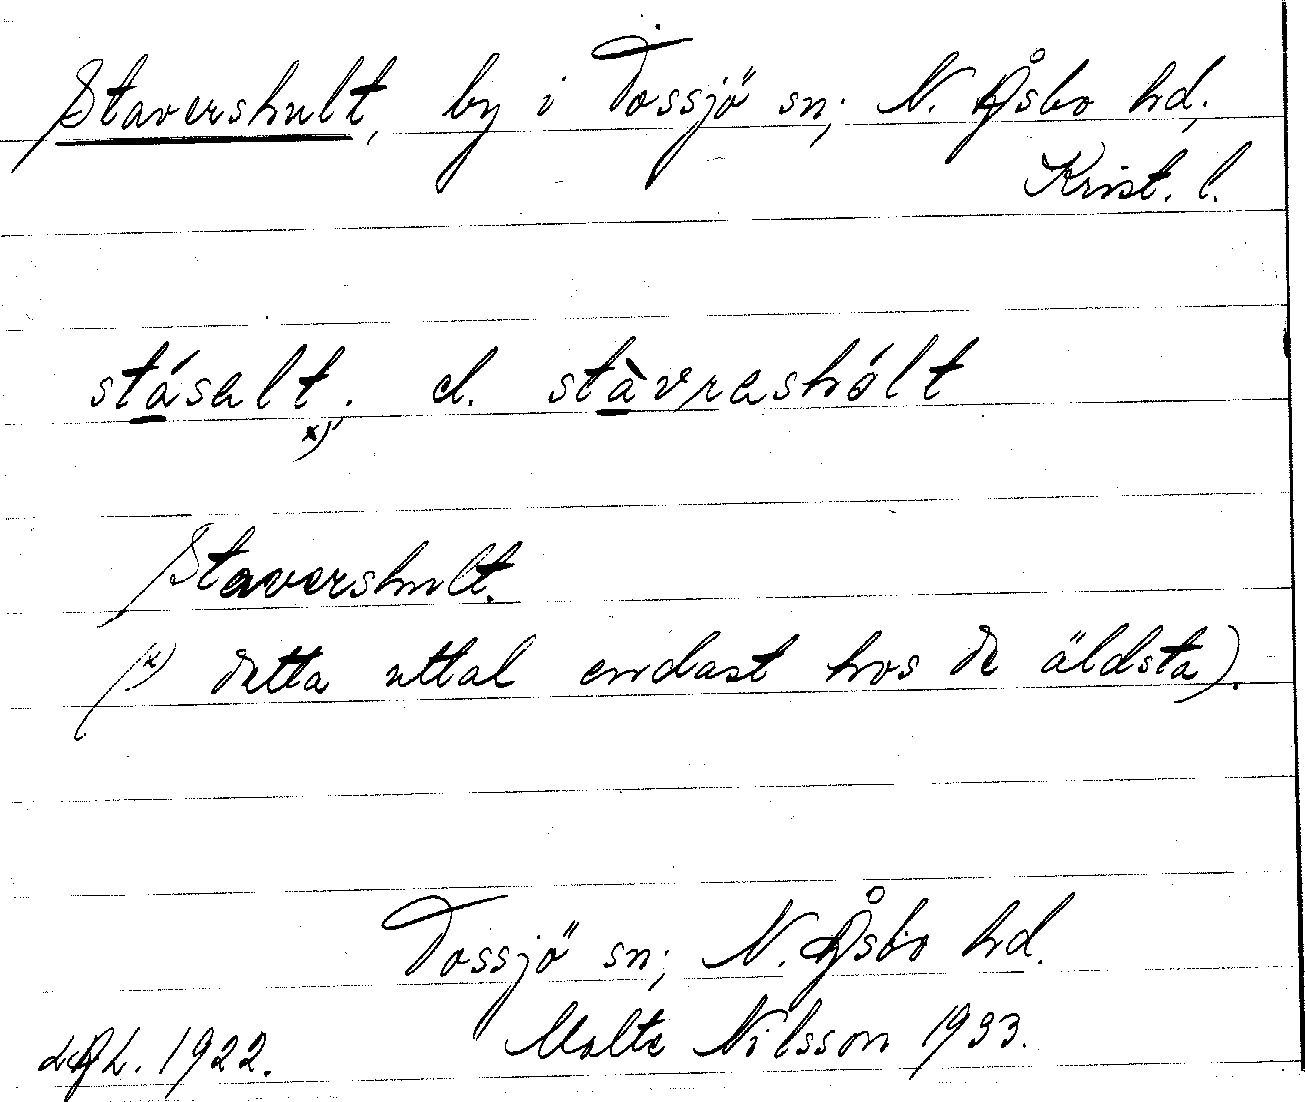 Stavershult, by i Tossjö sn; N. Åsbo hd;
Krist. l.
stásalt; d. stàvrashólt
x)
Stavershult.
(x) detta uttal endast hos de äldsta).
Tossjö sn; N. Åsbo hd.
1922. Malte Nilsson 1933.